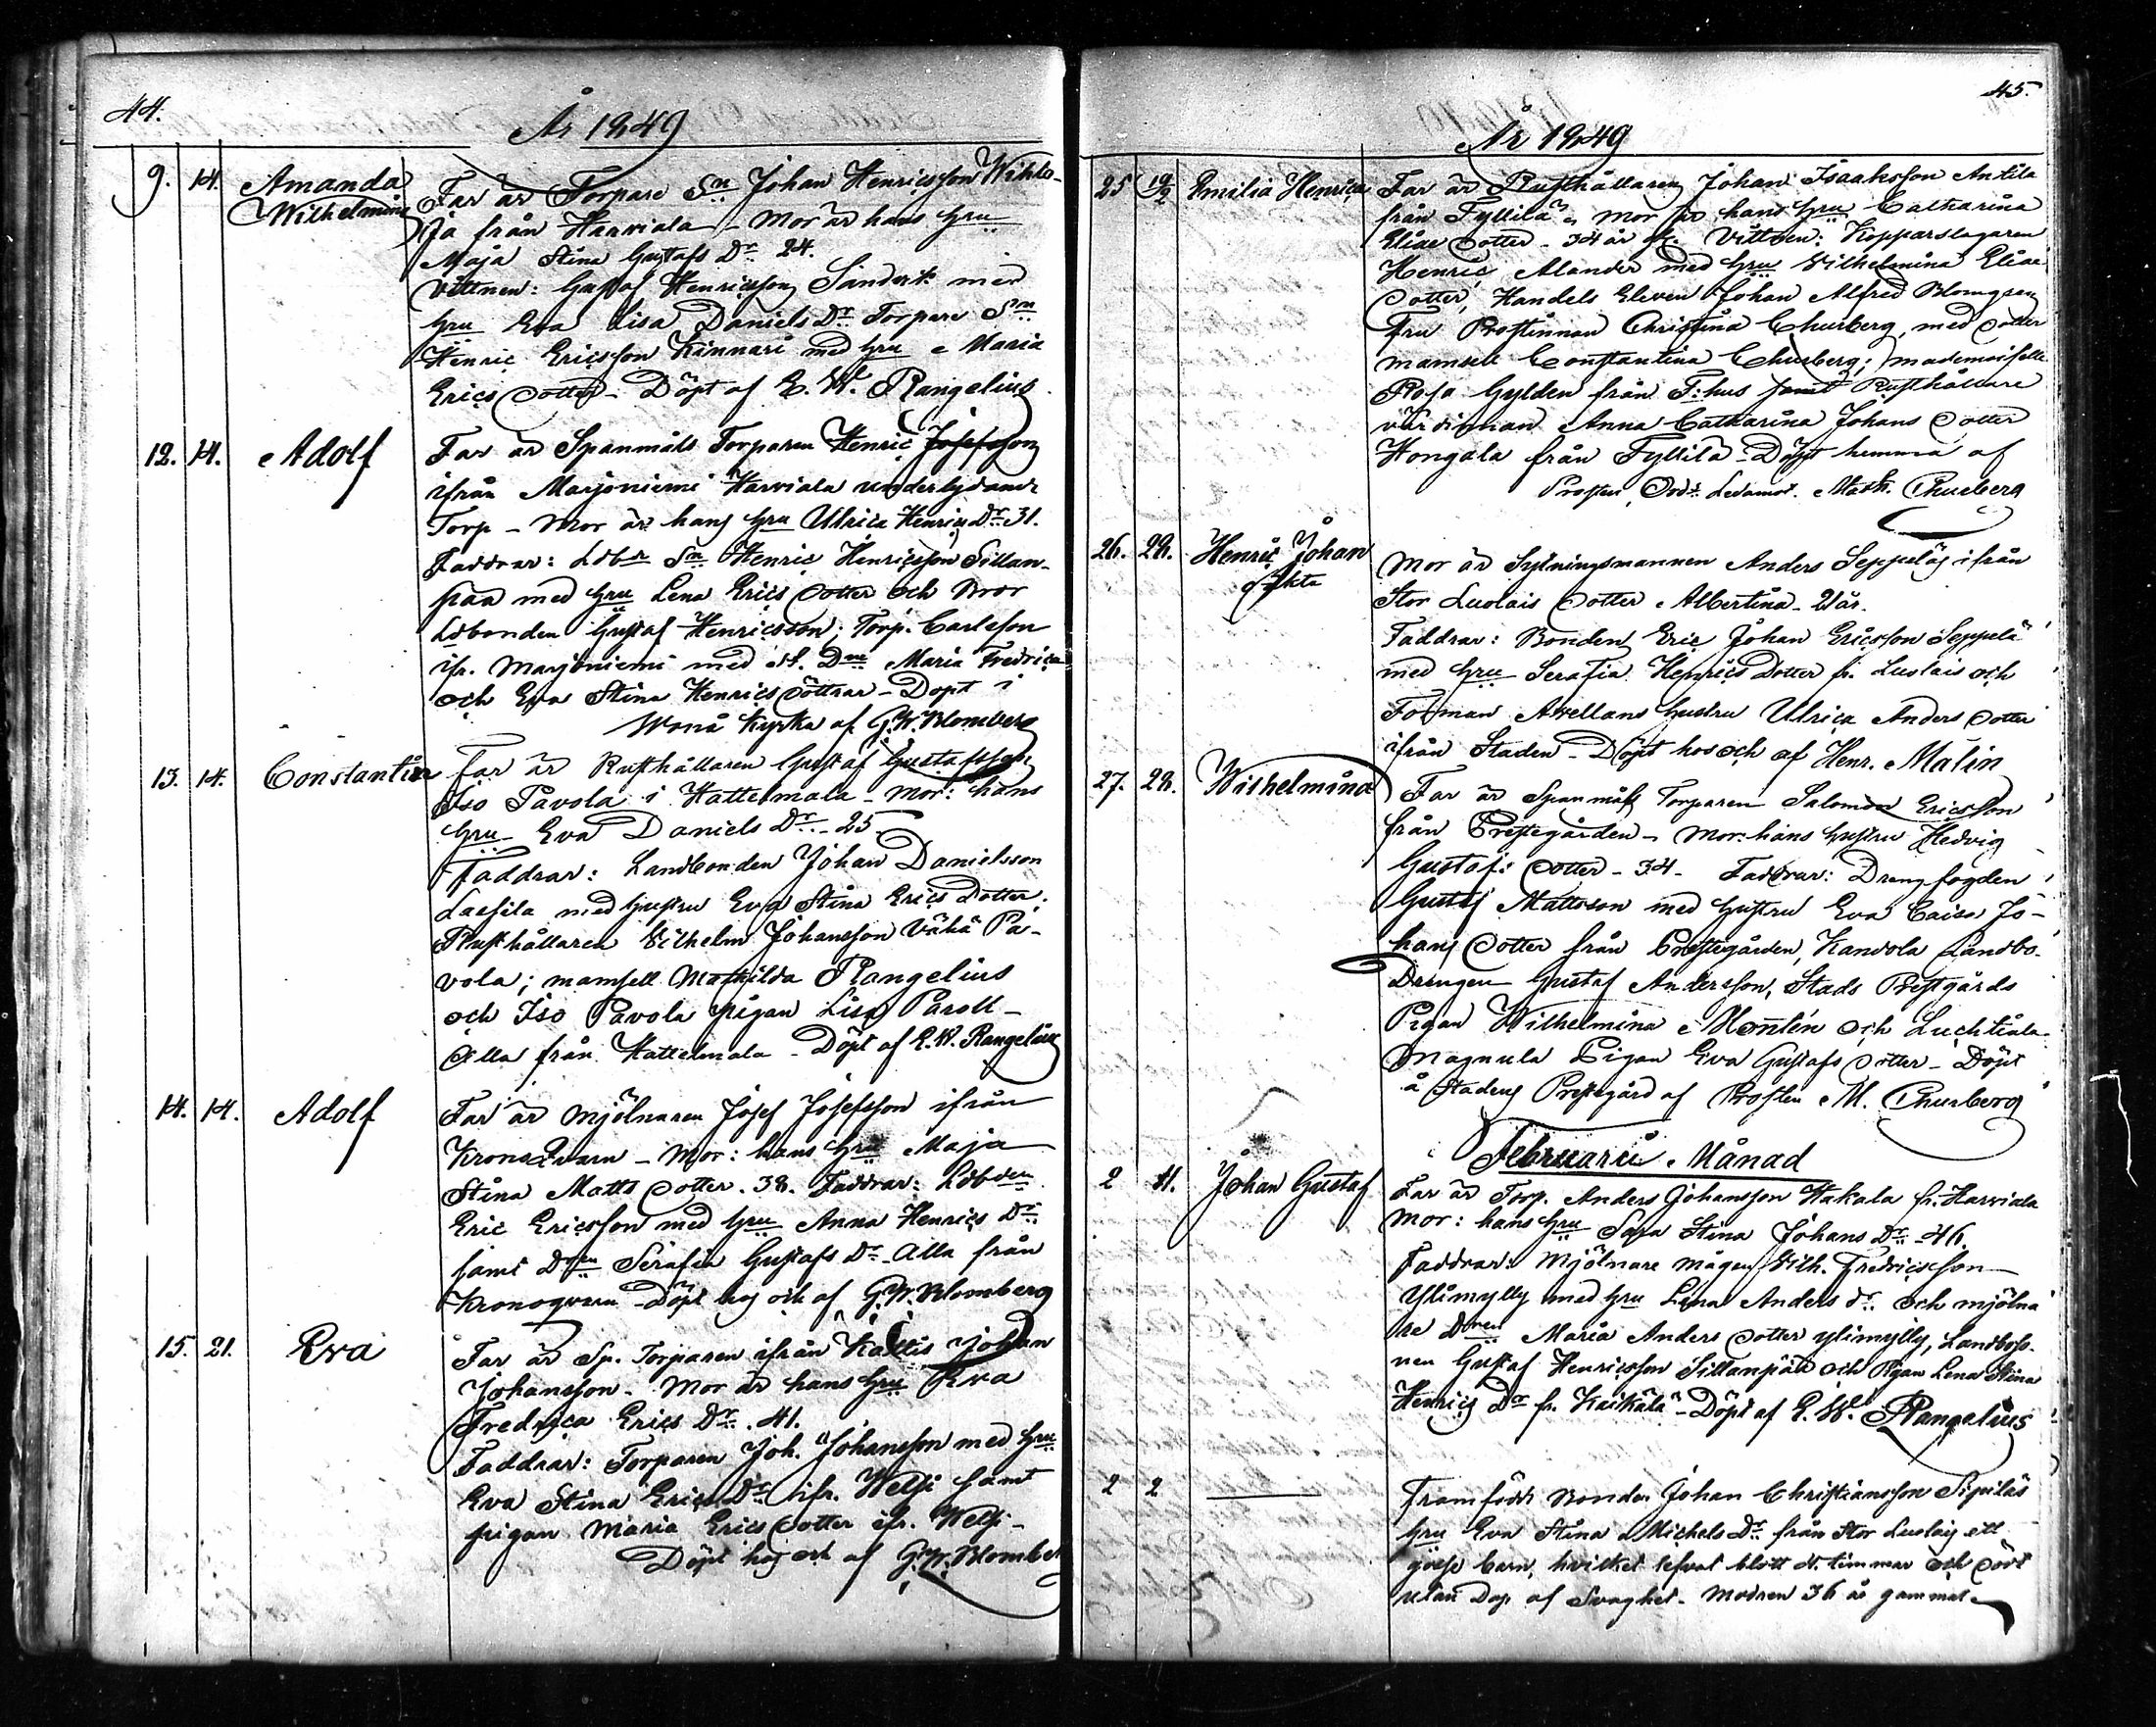 44.
År 1849
9. 14. Amanda Wilhelmina
Far är Torpare Sn Johan Henricsson Wihko-
ja från Harviala - Mor är hans hru
Maja Stina Gustafs Dr 24.
Vittnen: Gustaf Henricsson Sandvik med
hru Eva Lisa Daniels Dr Torpare Sn
Henric Ericsson Kinnari med hru Maria
Erics Dotter - Döpt af E. W. Rangelius
12. 14. Adolf
Far är Spanmåls Torparen Henric Josefsson
ifrån Marjoniemi Harviala underlydande
Torp - Mor är hans hru Ulrica Henrics Dr 31.
Faddrar: Ldb Sn Henric Henricsson Sillan-
pää med hru Lena Erics Dotter och Bror
Ldbonden Gustaf Henricsson; Torp. Carlsson
ifr. Marjoniemi med Dne Maria Fredrica
och Eva Stina Henrics döttrar - Döpt i
Wonå Kyrka af G. W. Blomberg
13. 14. Constantin
Far är Rusthållaren Gustaf Gustafsson
Iso Pavola i Hattelmala - Mor: hans
hru Eva Daniels Dr - 25
Faddrar: Landbonden Johan Danielsson
Lassila med hustru Eva Stina Erics Dotter.
Rusthållaren Vilhelm Johansson Vähä Pa-
vola; mamsell Mathilda Rangelius
och Iso Pavola pigan Lisa Paroll -
Alla från Hattelmala - Döpt af E. W. Rangelius
14. 14. Adolf
Far är Mjölnaren Josef Josefsson ifrån
Kronoqvarn - Mor: hans hru Maja
Stina Matts Dotter. 38. Faddrar: Ldbden
Eric Ericsson med hru Anna Henrics Dr
samt Dren Serafia Gustafs Dr - Alla från
Kronoqvarn - Döpt hos och af G. W. Blomberg
15. 21. Eva
Far är Sp. Torparen ifrån Kattis Johan
Johansson - Mor är hans hru Eva
Fredrica Erics Dr. 41.
Faddrar: Torparen Joh. Johansson med hru
Eva Stina Erics Dr ifr. Welsi samt
pigan Maria Erics Dotter ifr. Welsi -
Döpt hos och af G. W. Blomberg
45.
År 1849
25 19/2 Emilia Henrica
Far är Rusthållaren Johan Isaaksson Antila
från Tyllilä - Mor är hans hru Catharina
Eliae Dotter - 34 år. Vittnen: Kopparslagaren
Henric Alander med hru Vilhelmina Eliae
Dotter, Handels Eleven Johan Alfred Blomgren
Fru Prostinnan Christina Churberg med dotter
mamsell Constantina Churberg; mademoiselle
Rosa Gylden från T:hus samt Rusthållare
värdinnan Anna Catharina Johans Dotter
Hongala från Tyllilä - Döpt hemma af
Prosten, Ord. Ledamot. Math. Churberg
26. 28. Henric Johan
Mor är Sytningsmannen Anders Seppeläs ifrån
Stor Luolais Dotter Albertina - 21 år.
Faddrar: Bonden Eric Johan Ericsson Seppelä
med hru Serafia Henrics Dotter fr. Luolais och
Forman Avellans hustru Ulrica Anders Dotter
ifrån Staden - Döpt hos och af Henr. Malin
27. 28. Wilhelmina
Far är Spanmåls Torparen Salomon Ericsson
från Prestegården - Mor: hans hustru Hedvig
Gustafs Dotter - 34 - Faddrar: Drängfogden
Gustaf Mattsson med hustru Eva Caisa Jo-
hans Dotter från Prestegården, Kandola Landbo-
Drengen Gustaf Andersson, Stads Prestgårds
Pigan Wilhelmina Montén och Luchtiala
Magnula Pigan Eva Gustafs Dotter - Döpt
å Stadens Prestegård af Prosten M. Churberg
Februarii Månad
2 11. Johan Gustaf
Far är Torp. Anders Johansson Hakala fr. Harviala
Mor: hans hru Sofia Stina Johans Dr - 46.
Faddrar: Mjölnare mågen Vilh. Fredricsson
Ylimylly med hru Lena Anders dr och mjölna
re Dren Maria Anders Dotter Ylimylly, Landboso-
nen Gustaf Henricsson Sillanpää och Pigan Lena Stina
Henrics Dr fr. Kaikala - Döpt af E. W. Rangelius
2 2
Framfödde Bonden Johan Christiansson Sipiläs
hru Eva Stina Michels Dr från Stor Luolais ett
gosse barn, hvilket lefvat blott timmar och dödt
utan Dop af Svaghet - Modren 36 år gammal